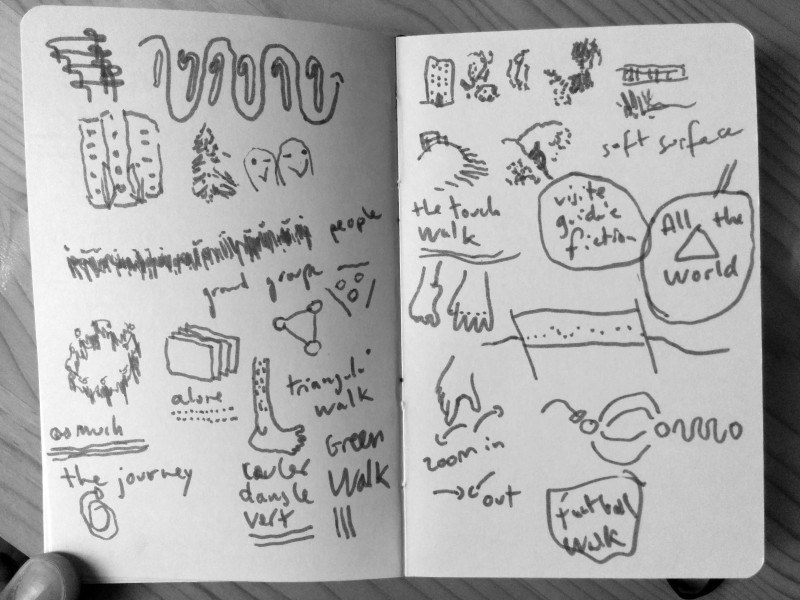 people
grand group
alone
triangul
walk
as much
the journey
couler
dans le
vert
Green
Walk
soft surface
the touch
walk
visite
guidée
fiction
All the
world
zoom in
out
football
walk